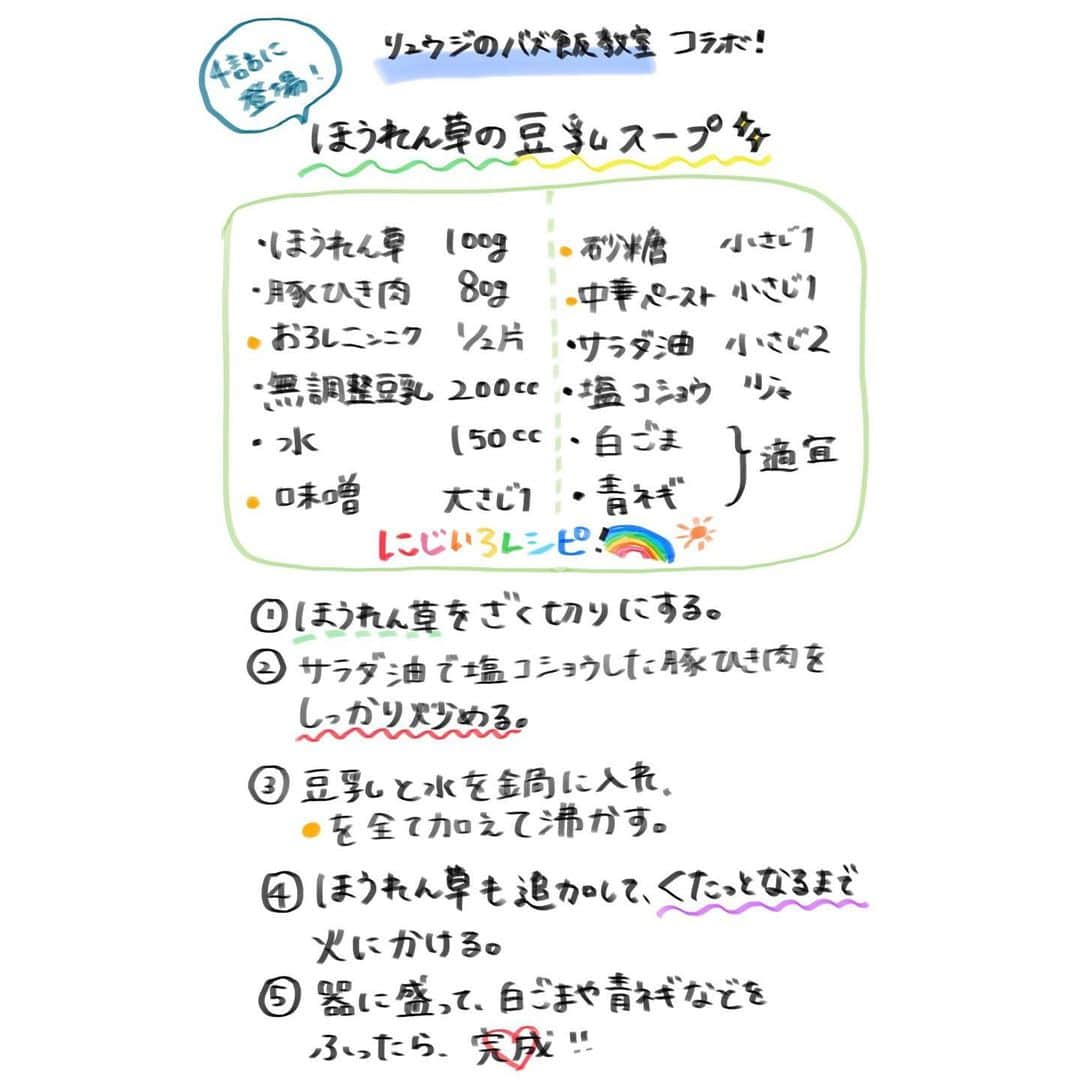 4話に
登場！
リュウジのバズ飯教室 コラボ！
ほうれん草の豆乳スープ
・ほうれん草 100g
・豚ひき肉 80g
おろしニンニク 1/2片
・無調整豆乳 200cc
・水 150cc
味噌 大さじ1
砂糖 小さじ1
中華ペースト 小さじ1
・サラダ油 小さじ2
・塩コショウ 少々
・白ごま
・青ネギ
適宜
にじいろレシピ！
① ほうれん草をざく切りにする。
② サラダ油で塩コショウした豚ひき肉を
しっかり炒める。
③ 豆乳と水を鍋に入れ、
●を全て加えて沸かす。
④ ほうれん草も追加して、くたっとなるまで
火にかける。
⑤ 器に盛って、白ごまや青ネギなどを
ふったら、完成!!